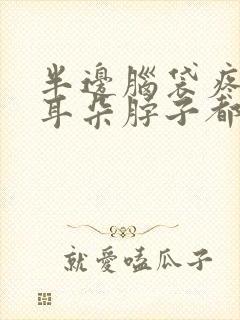 半邊腦袋疼
耳朵脖子都
就愛嗑瓜子